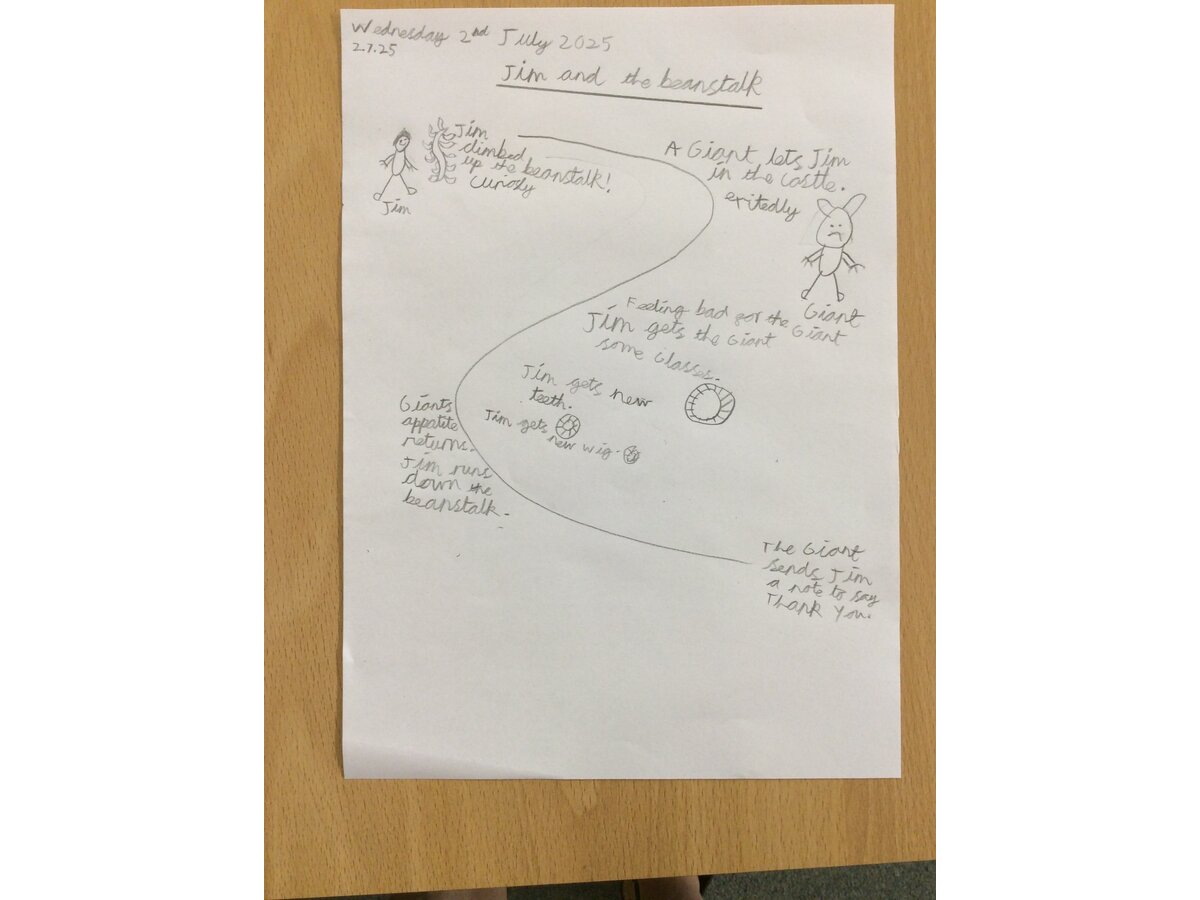 Wednesday 2nd July 2025
2.7.25
Jim and the beanstalk
Jim
climbed
up the beanstalk!
Curiosly
Jim
A Giant lets Jim
in the Castle.
exitedly
Giant
Feeling bad for the Giant
Jim gets the Giant
some Glasses.
Jim gets new
teeth.
Jim gets
new wig.
Giants
appatite
returns.
Jim runs
down the
beanstalk.
The Giant
sends Jim
a note to say
Thank You.